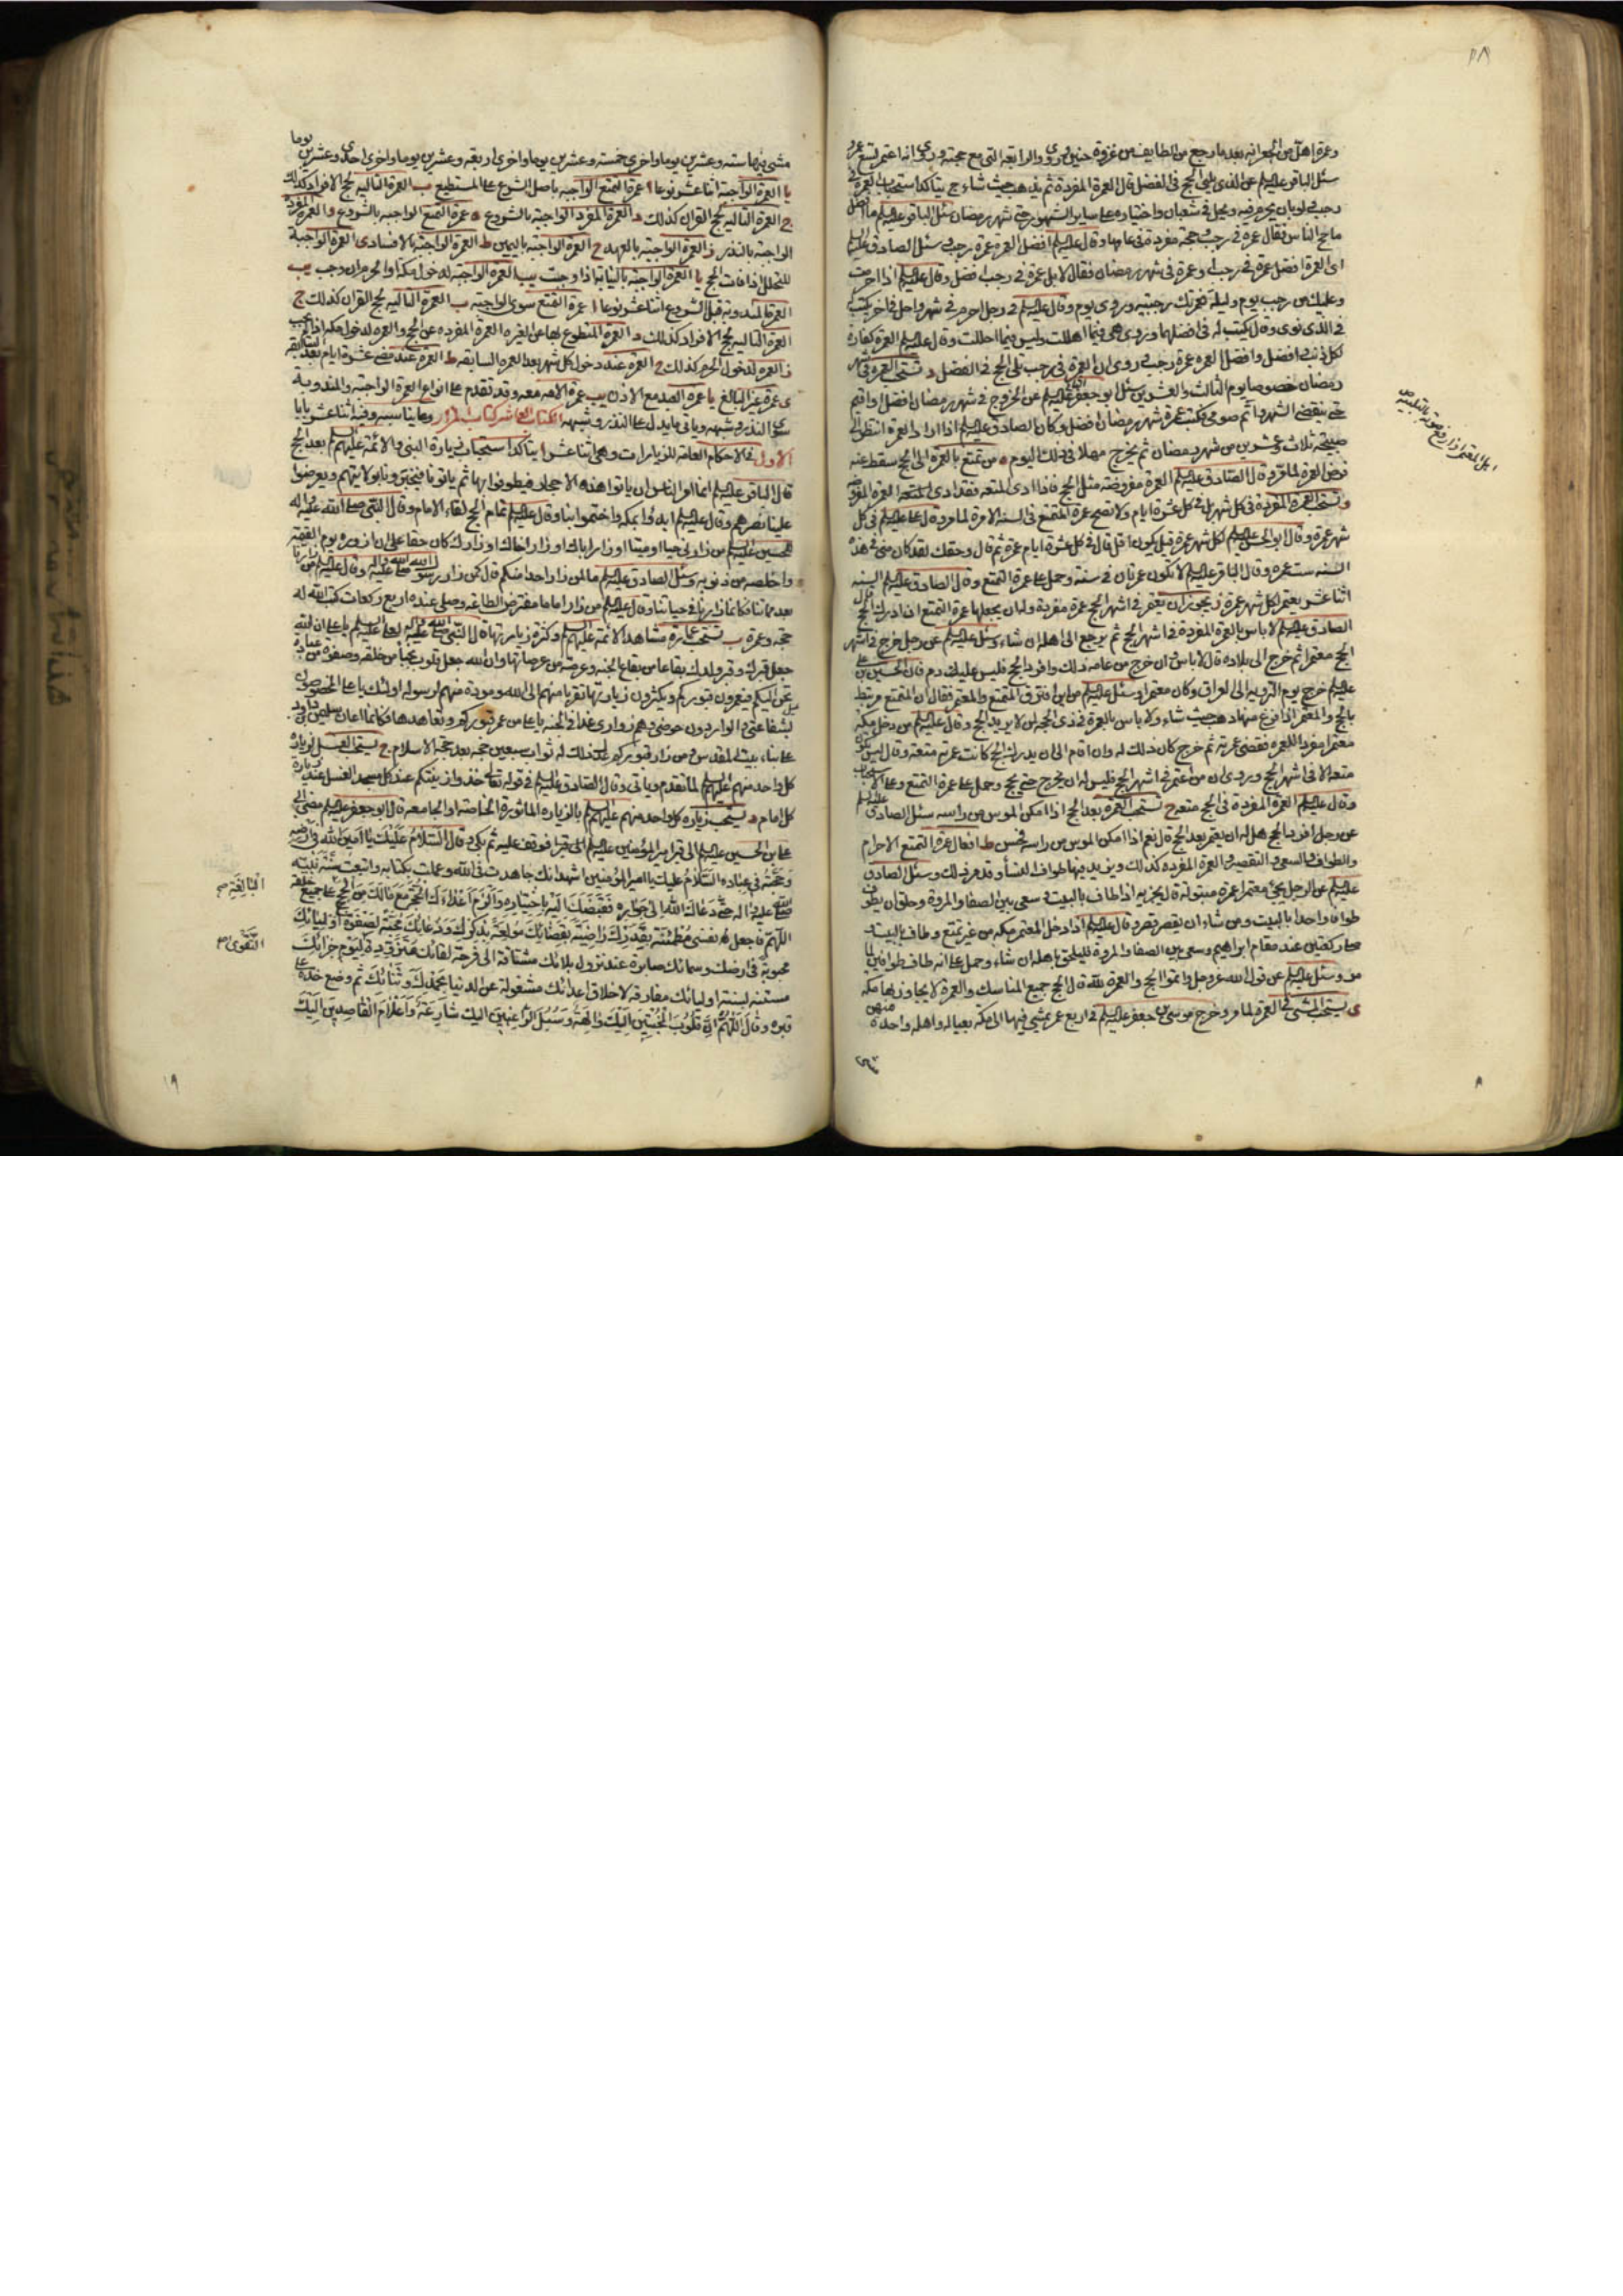 وعمرة اهل من الجعرانة بعد ما رجع من الطايف من غزوة حنين وروى والرابعة التي مع حجته وروى انه اعتمر تسع عمر
سئل الباقر عليه السلم عن الذي يلي الحج في الفضل قال العمرة المفردة ثم يذهب حيث شاء ج يتاكد استحباب العمرة في
رجب ولو بان يحرم فيه ويحل في شعبان واختياره على ساير الشهور حتى شهر رمضان سئل الباقر عليه السلم ما افضل
ما حج الناس فقال عمرة في رجب وحجة مفردة في عامها وقال عليه السلم افضل العمرة عمرة رجب وسئل الصادق عليه السلم
اي العمرة افضل عمرة في رجب او عمرة في شهر رمضان فقال لا بل عمرة في رجب افضل وقال عليه السلم اذا احرمت
وعليك من رجب يوم وليلة فعمرتك رجبية وروى يوم وقال عليه السلم في رجل احرم في شهر واحل في اخر يكتب
في الذي نوى وقال يكتب له في افضلهما وروى هي فيما اهللت وليس فيما احللت وقال عليه السلم العمرة كفارة
لكل ذنب وافضل العمرة عمرة رجب وروى ان العمرة في رجب تلي الحج في الفضل د تستحب العمرة في شهر
رمضان خصوصا يوم الثالث والعشرين سئل ابو جعفر عليه السلم عن الخروج في شهر رمضان افضل او اقيم
حتى ينقضي الشهر واتم صومي فكتب عمرة شهر رمضان افضل وكان الصادق عليه السلم اذا اراد العمرة انتظر الى
صبيحة ثلاث وعشرين من شهر رمضان ثم يخرج مهلا في ذلك اليوم ه من تمتع بالعمرة الى الحج سقط عنه
فرض العمرة لما مر وقال الصادق عليه السلم العمرة مفروضة مثل الحج فاذا ادى المتعة فقد ادى العمرة المفروضة
و تستحب العمرة المفردة في كل شهر بل في كل عشرة ايام ولا تصح عمرة التمتع في السنة الا مرة لما مر وقال علي عليه السلم في كل
شهر عمرة وقال ابو الحسن عليه السلم لكل شهر عمرة قيل يكون اقل قال في كل عشرة ايام عمرة ثم قال وحقك لقد كان مني في هذه
السنة ست عمر وقال الباقر عليه السلم لا تكون عمرتان في سنة وحمل على عمرة التمتع وقال الصادق عليه السلم السنة
اثنا عشر يعتمر لكل شهر عمرة ز يجوز ان يعتمر في اشهر الحج عمرة مفردة ولمان يجعلها عمرة التمتع اذا ادرك الحج قال
الصادق عليه السلم لا باس بالعمرة المفردة في اشهر الحج ثم يرجع الى اهله ان شاء وسئل عليه السلم عن رجل خرج في اشهر
الحج معتمرا ثم خرج الى بلاده قال لا باس وان خرج من عامه ذلك وافرد الحج فليس عليك دم فان الحسين بن علي
عليه السلم خرج يوم التروية الى العراق وكان معتمرا وسئل عليه السلم من اين افترق المتمتع والمعتمر فقال ان المتمتع مرتبط
بالحج والمعتمر اذا فرغ منها ذهب حيث شاء ولا باس بالعمرة في ذي الحجة لمن لا يريد الحج وقال عليه السلم من دخل مكة
معتمرا مفردا للعمرة فقضى عمرته ثم خرج كان ذلك له وان اقام الى ان يدركه الحج كانت عمرته متعة وقال ليس تكون
متعة الا في اشهر الحج وروى ان من اعتمر في اشهر الحج فليس له ان يخرج حتى يحج وحمل على عمرة التمتع وعلى الاستحباب
وقال عليه السلم العمرة المفردة في الحج متعة ح تستحب العمرة بعد الحج اذا امكن الموسى من راسه سئل الصادق عليه السلم
عن رجل افرد الحج هل له ان يعتمر بعد الحج قال نعم اذا امكن الموسى من راسه فحسن ط افعال عمرة التمتع الاحرام
والطواف والسعي والتقصير والعمرة المفردة كذلك ويزيد فيها طواف النساء وقد مر ذلك وسئل الصادق
عليه السلم عن الرجل يجيء معتمرا عمرة مبتولة قال يجزيه اذا طاف بالبيت وسعى بين الصفا والمروة وحلق ان يطوف
طوافا واحدا بالبيت ومن شاء ان يقصر قصر وقال عليه السلم اذا دخل المعتمر مكة من غير تمتع وطاف بالبيت و
صلى ركعتين عند مقام ابراهيم وسعى بين الصفا والمروة فليلحق باهله ان شاء وحمل على انه طاف طوافين لما
مر وسئل عليه السلم عن قول الله عز وجل واتموا الحج والعمرة لله قال الحج جميع المناسك والعمرة لا يجاوز بها مكة
ى يستحب المشي في العمرة لما مر وخرج موسى بن جعفر عليه السلم في اربع عمر يمشي فيها الى مكة بعياله واهله واحدة منهن
مشى فيها ستة وعشرين يوما واخرى خمسة وعشرين يوما واخرى اربعة وعشرين يوما واخرى احدى وعشرين يوما
يا العمرة الواجبة اثنا عشر نوعا ا عمرة التمتع الواجبة باصل الشرع على المستطيع ب العمرة التالية لحج الافراد كذلك
ج العمرة التالية لحج القران كذلك د العمرة المفردة الواجبة بالشروع ه عمرة التمتع الواجبة بالشروع و العمرة المفردة
الواجبة بالنذر ز العمرة الواجبة بالعهد ح العمرة الواجبة باليمين ط العمرة الواجبة بالافساد ى العمرة الواجبة
للتحلل اذا فات الحج يا العمرة الواجبة بالنيابة اذا وجبت يب العمرة الواجبة لدخول مكة او الحرم ان وجب يب
العمرة المندوبة قبل الشروع اثنا عشر نوعا ا عمرة التمتع سوى الواجبة ب العمرة التالية لحج القران كذلك ج
العمرة التالية لحج الافراد كذلك د العمرة المتطوع بها عن الغير ه العمرة المفردة عن الحج و العمرة لدخول مكة اذا لم يجب
ز العمرة لدخول الحرم كذلك ح العمرة عند دخول كل شهر بعد العمرة السابقة ط العمرة عند مضي عشرة ايام بعد السابقة
ى عمرة غير البالغ يا عمرة العبد مع الاذن يب عمرة الامة معه وقد تقدم على انواع العمرة الواجبة والمندوبة
سوى النذر وشبهه وياتي ما يدل على النذر وشبهه الكتاب العاشر كتاب المزار وما يناسبه وفيه اثنا عشر بابا
الاول في الاحكام العامة للزيارات وهي اثنا عشر ا يتاكد استحباب زيارة النبي والائمة عليهم السلم بعد الحج
قال الباقر عليه السلم انما امر الناس ان ياتوا هذه الاحجار فيطوفوا بها ثم ياتونا فيخبرونا بولايتهم ويعرضوا
علينا نصرهم وقال عليه السلم ابدؤا بمكة واختموا بنا وقال عليه السلم تمام الحج لقاء الامام وقال النبي صلى الله عليه واله
للحسين عليه السلم من زارني حيا او ميتا او زار اباك او زار اخاك او زارك كان حقا علي ان ازوره يوم القيمة
واخلصه من ذنوبه وسئل الصادق عليه السلم ما لمن زار واحدا منكم قال كمن زار رسول الله صلى الله عليه واله وقال عليه السلم من زارنا
بعد مماتنا فكانما زارنا في حياتنا وقال عليه السلم من زار اماما مفترض الطاعة وصلى عنده اربع ركعات كتب الله له
حجة وعمرة ب تستحب عمارة مشاهد الائمة عليهم السلم وكثرة زيارتها قال النبي صلى الله عليه واله لعلي عليه السلم يا علي ان الله
جعل قبرك وقبر ولدك بقاعا من بقاع الجنة وعرصة من عرصاتها وان الله جعل قلوب نجباء من خلقه وصفوة من عباده
تحن اليكم فيعمرون قبوركم ويكثرون زيارتها تقربا منهم الى الله ومودة منهم لرسوله اولئك يا علي المخصوصون
بشفاعتي والواردون حوضي وهم زواري غدا في الجنة يا علي من عمر قبوركم وتعاهدها فكانما اعان سليمن بن داود
على بناء بيت المقدس ومن زار قبوركم عدل ذلك له ثواب سبعين حجة بعد حجة الاسلام ج يستحب الغسل لزيارة
كل واحد منهم عليهم السلم لما تقدم وياتي وقال الصادق عليه السلم في قوله تعالى خذوا زينتكم عند كل مسجد الغسل عند زيارة
كل امام د يستحب زيارة كل واحد منهم عليهم السلم بالزيارة الماثورة الخاصة او الجامعة قال ابو جعفر عليه السلم مضى ابي
علي بن الحسين عليه السلم الى قبر امير المؤمنين عليه السلم الى قبر فوقف عليه ثم بكى وقال السلام عليك يا امين الله في ارضه
وحجته في عباده السلام عليك يا امير المؤمنين اشهد انك جاهدت في الله وعملت بكتابه واتبعت سنة نبيه
صلى الله عليه واله حتى دعاك الله الى جواره فقبضك اليه باختياره والزم اعداءك الحجة مع مالك من الحجج على جميع خلقه
اللهم فاجعل نفسي مطمئنة بقدرك راضية بقضائك مولعة بذكرك ودعائك محبة لصفوة اوليائك
محبوبة في ارضك وسمائك صابرة عند نزول بلائك مشتاقة الى فرحة لقائك متزودة ليوم جزائك
مستنة بسنة اوليائك مفارقة لاخلاق اعدائك مشغولة عن الدنيا بحمدك وثنائك ثم وضع خده على
قبره وقال اللهم ان قلوب المخبتين اليك والهة وسبل الراغبين اليك شارعة واعلام القاصدين اليك
البالغة صح
التقوى صح